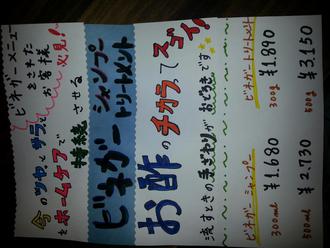 ビネガーメニュー
をされた
お客様
必見!
今のツヤとサラサラ
をホームケアで
持続させる
ビネガー シャンプー
トリートメント
お酢のチカラってスゴイ!
流すときの手ざわりがおどろきです
ビネガーシャンプー
300ml ¥1.680
500ml ¥2.730
ビネガートリートメント
300g ¥1.890
500g ¥3.150